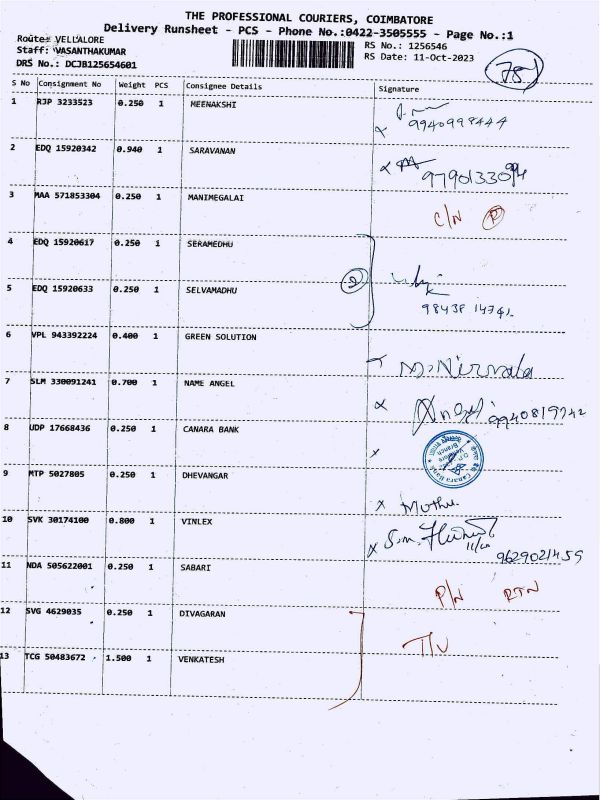 THE PROFESSIONAL COURIERS, COIMBATORE
Delivery Runsheet - PCS - Phone No.:0422-3505555 - Page No.:1
Route: VELLALORE
Staff: VASANTHAKUMAR
DRS No.: DCJB125654601
RS No.: 1256546
RS Date: 11-Oct-2023
751
S No Consignment No Weight PCS Consignee Details Signature
1 RJP 3233523 0.250 1 MEENAKSHI
9940999444
2 EDQ 15920342 0.940 1 SARAVANAN
3 MAA 571853304 0.250 1 MANIMEGALAI C/N P
4 EDQ 15920617 0.250 1 SERAMEDHU
2
5 EDQ 15920633 0.250 1 SELVAMADHU
98438 14741
6 VPL 943392224 0.400 1 GREEN SOLUTION
M. Nirmala
7 SLM 330091241 0.700 1 NAME ANGEL
Angel 9940819742
8 UDP 17668436 0.250 1 CANARA BANK
Canara Bank
9 MTP 5027805 0.250 1 DHEVANGAR
Muthu.
10 SVK 30174100 0.800 1 VINLEX
9629021455
11 NDA 505622001 0.250 1 SABARI P/N RTN
12 SVG 4629035 0.250 1 DIVAGARAN
T/V
13 TCG 50483672 1.500 1 VENKATESH